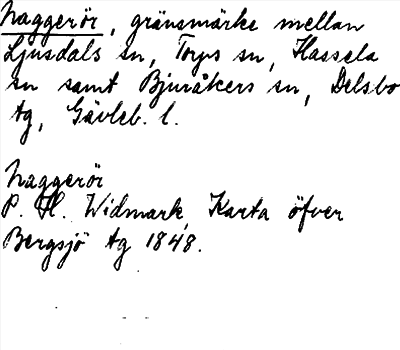 Naggerör, gränsmärke mellan
Ljusdals sn, Torps sn, Hassela
sn samt Bjuråkers sn, Delsbo
tg, Gävleb. l.
Naggerör
P. H. Widmark, Karta öfver
Bergsjö tg 1848.